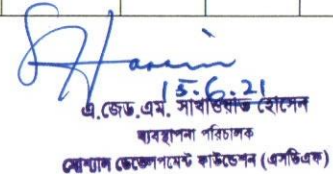 Hasein
15.6.21
এ.জেড.এম. সাখাওয়াত হোসেন
ব্যবস্থাপনা পরিচালক
সোশ্যাল ডেভেলপমেন্ট ফাউন্ডেশন (এসডিএফ)